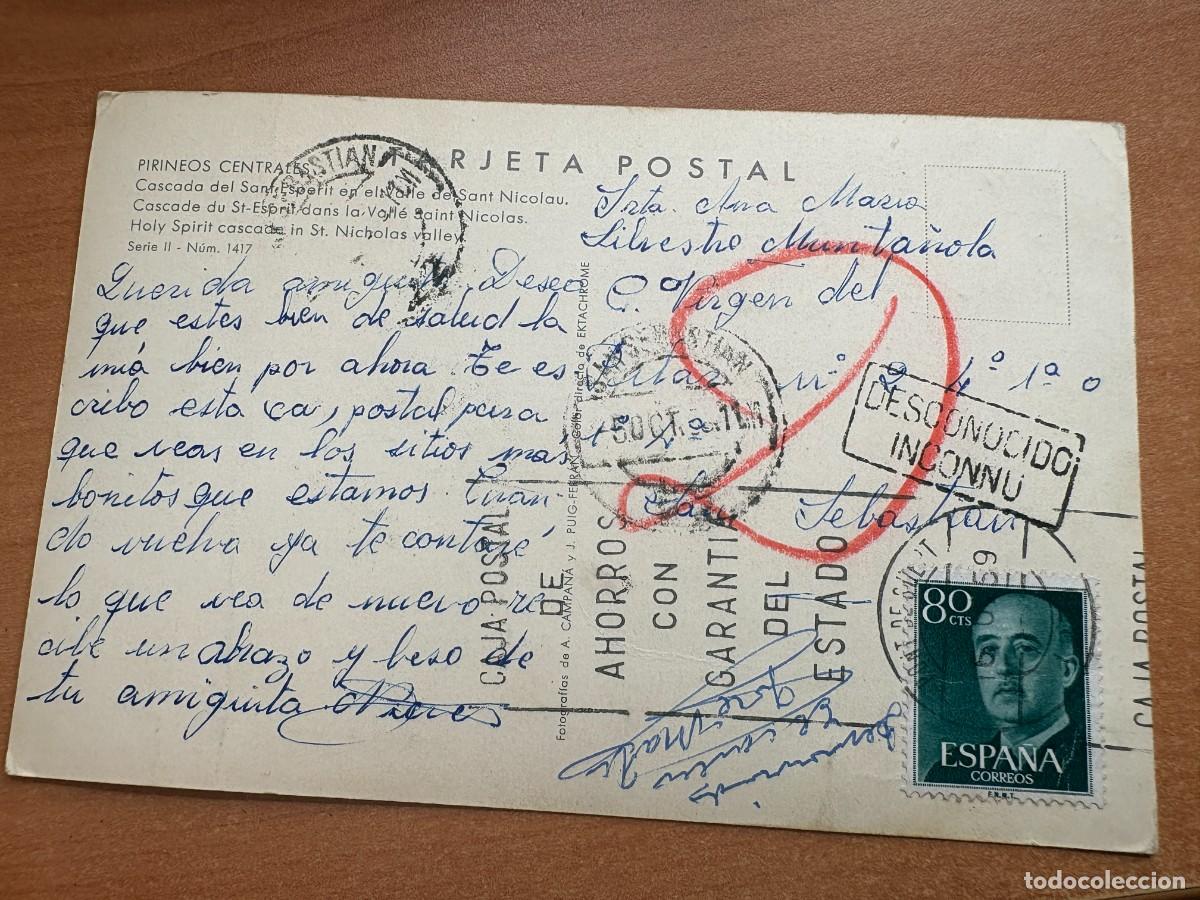 TARJETA POSTAL
PIRINEOS CENTRALES
Cascada del Sant Esperit en el Valle de Sant Nicolau.
Cascade du St-Esprit dans la Vallé Saint Nicolas.
Holy Spirit cascade in St. Nicholas valley
Serie II - Núm. 1417
Querida amiguita Deseo
que estes bien de salud la
miá bien por ahora Te es
cribo esta ca, postal para
que veas en los sitios mas
bonitos que estamos Cuan
do vuelva ya te contaré
lo que vea de nuevo re
cibe un abrazo y beso de
tu amiguita Nieves
Fotografías de A. CAMPAÑÁ y J. PUIG-FERRÁN - Color directo de EKTACHROME
Srta. Ana Maria
Silvestre Muntañola
C. Virgen del
nº 2 4º 1ª o
1º 1ª
San Sebastian
SAN SEBASTIAN
DESCONOCIDO
INCONNU
CAJA POSTAL
DE
AHORROS
CON
GARANTIA
DEL
ESTADO
CAJA POSTAL
80
CTS
ESPAÑA
CORREOS
F.N.M.T.
todocoleccion